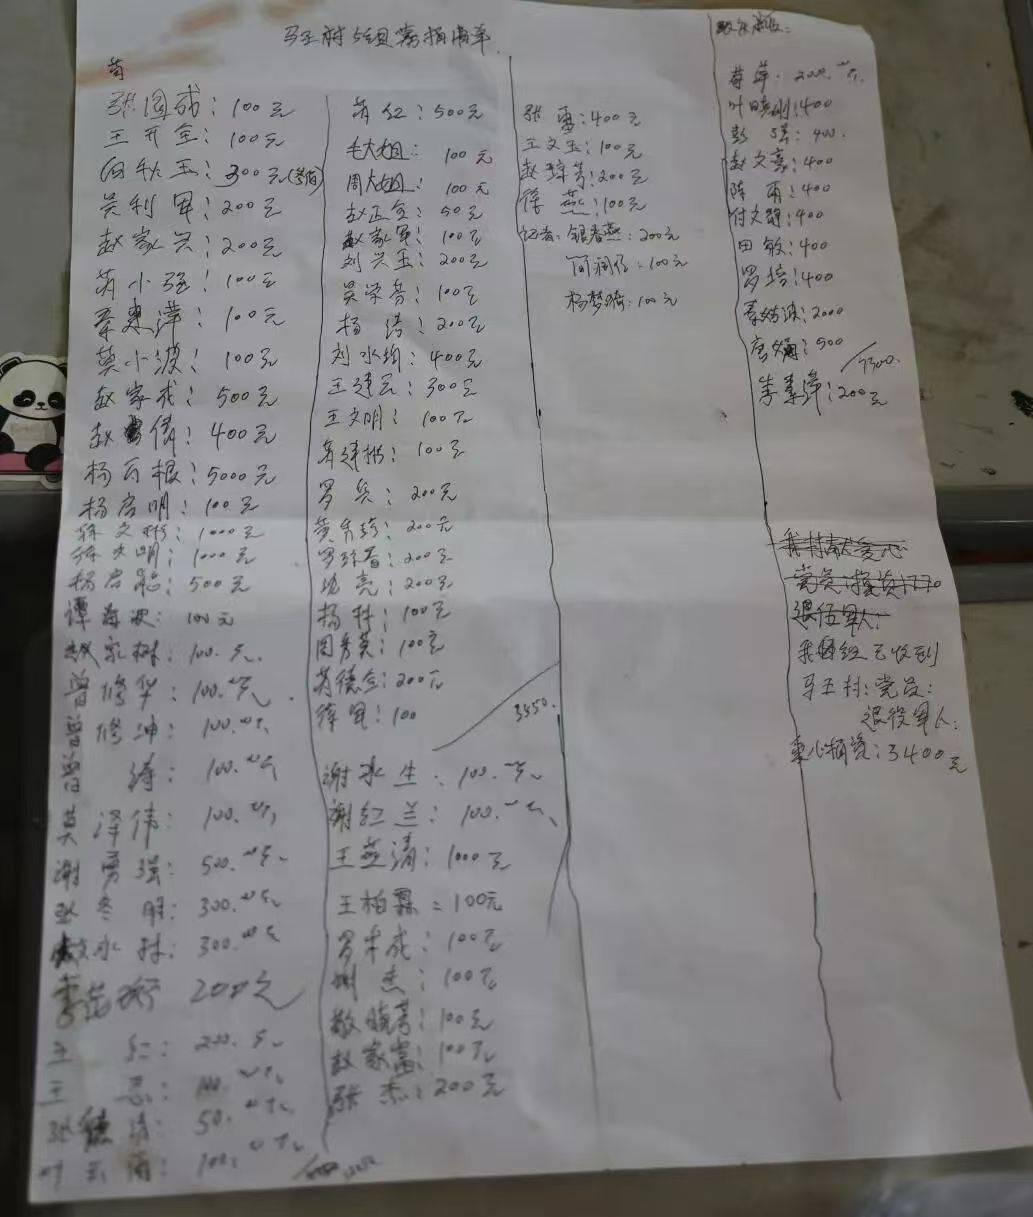 马王村5组募捐清单
张国成：100元
王开全：100元
向秋玉：300元
吴利军：200元
赵家兴：200元
苏小强：100元
秦惠萍：100元
莫小波：100元
赵家成：500元
赵 倩：400元
杨万根：5000元
杨启明：100元
徐文彬：1000元
徐文明：1000元
杨启聪：500元
谭海波：100元
赵家林：100.元
曾修华：100.元
曾修坤：100.元
曾 涛：100.元
莫泽伟：100.元
谢勇强：500.元
赵冬明：300.元
敬水林：300.元
200元
王 红：200.元
王 忠：100.元
张 ：50.元
叶 ：100.元
苏红：500元
毛大姐：100元
周大姐：100元
赵正全：50元
赵家军：100元
刘兴玉：200元
吴荣香：100元
杨 涛：200元
刘水均：400元
王建兵：300元
王文明：100元
苏建彬：100元
罗 兵：200元
黄秀珍：200元
罗琼香：200元
沈亮：200元
杨 科：100元
周秀英：100元
苏德全：200元
徐军：100
3450.
谢永生：100.元
谢红兰：100.元
王燕清：1000元
王柏霖=100元
罗华成：100元
谢 杰：100元
敬晓蓉：100元
赵家富：100元
张 杰：200元
张 雷：400元
王文玉：100元
赵琼芳：200元
徐 燕：100元
记者：银春燕：200元
何润仔：100元
杨梦琦：100元
苟萍：200.元
叶晓刚：400
彭 瑛：400.
赵文亮：400
陈 雨：400
付文群：400
田 敏：400
罗培：400
秦波：2000
唐娟：500
7300.
李素萍：200元
我村献爱心
党员：捐资1770
退伍军人：
我组已收到
马王村：党员：
退役军人：
爱心捐资：3400元